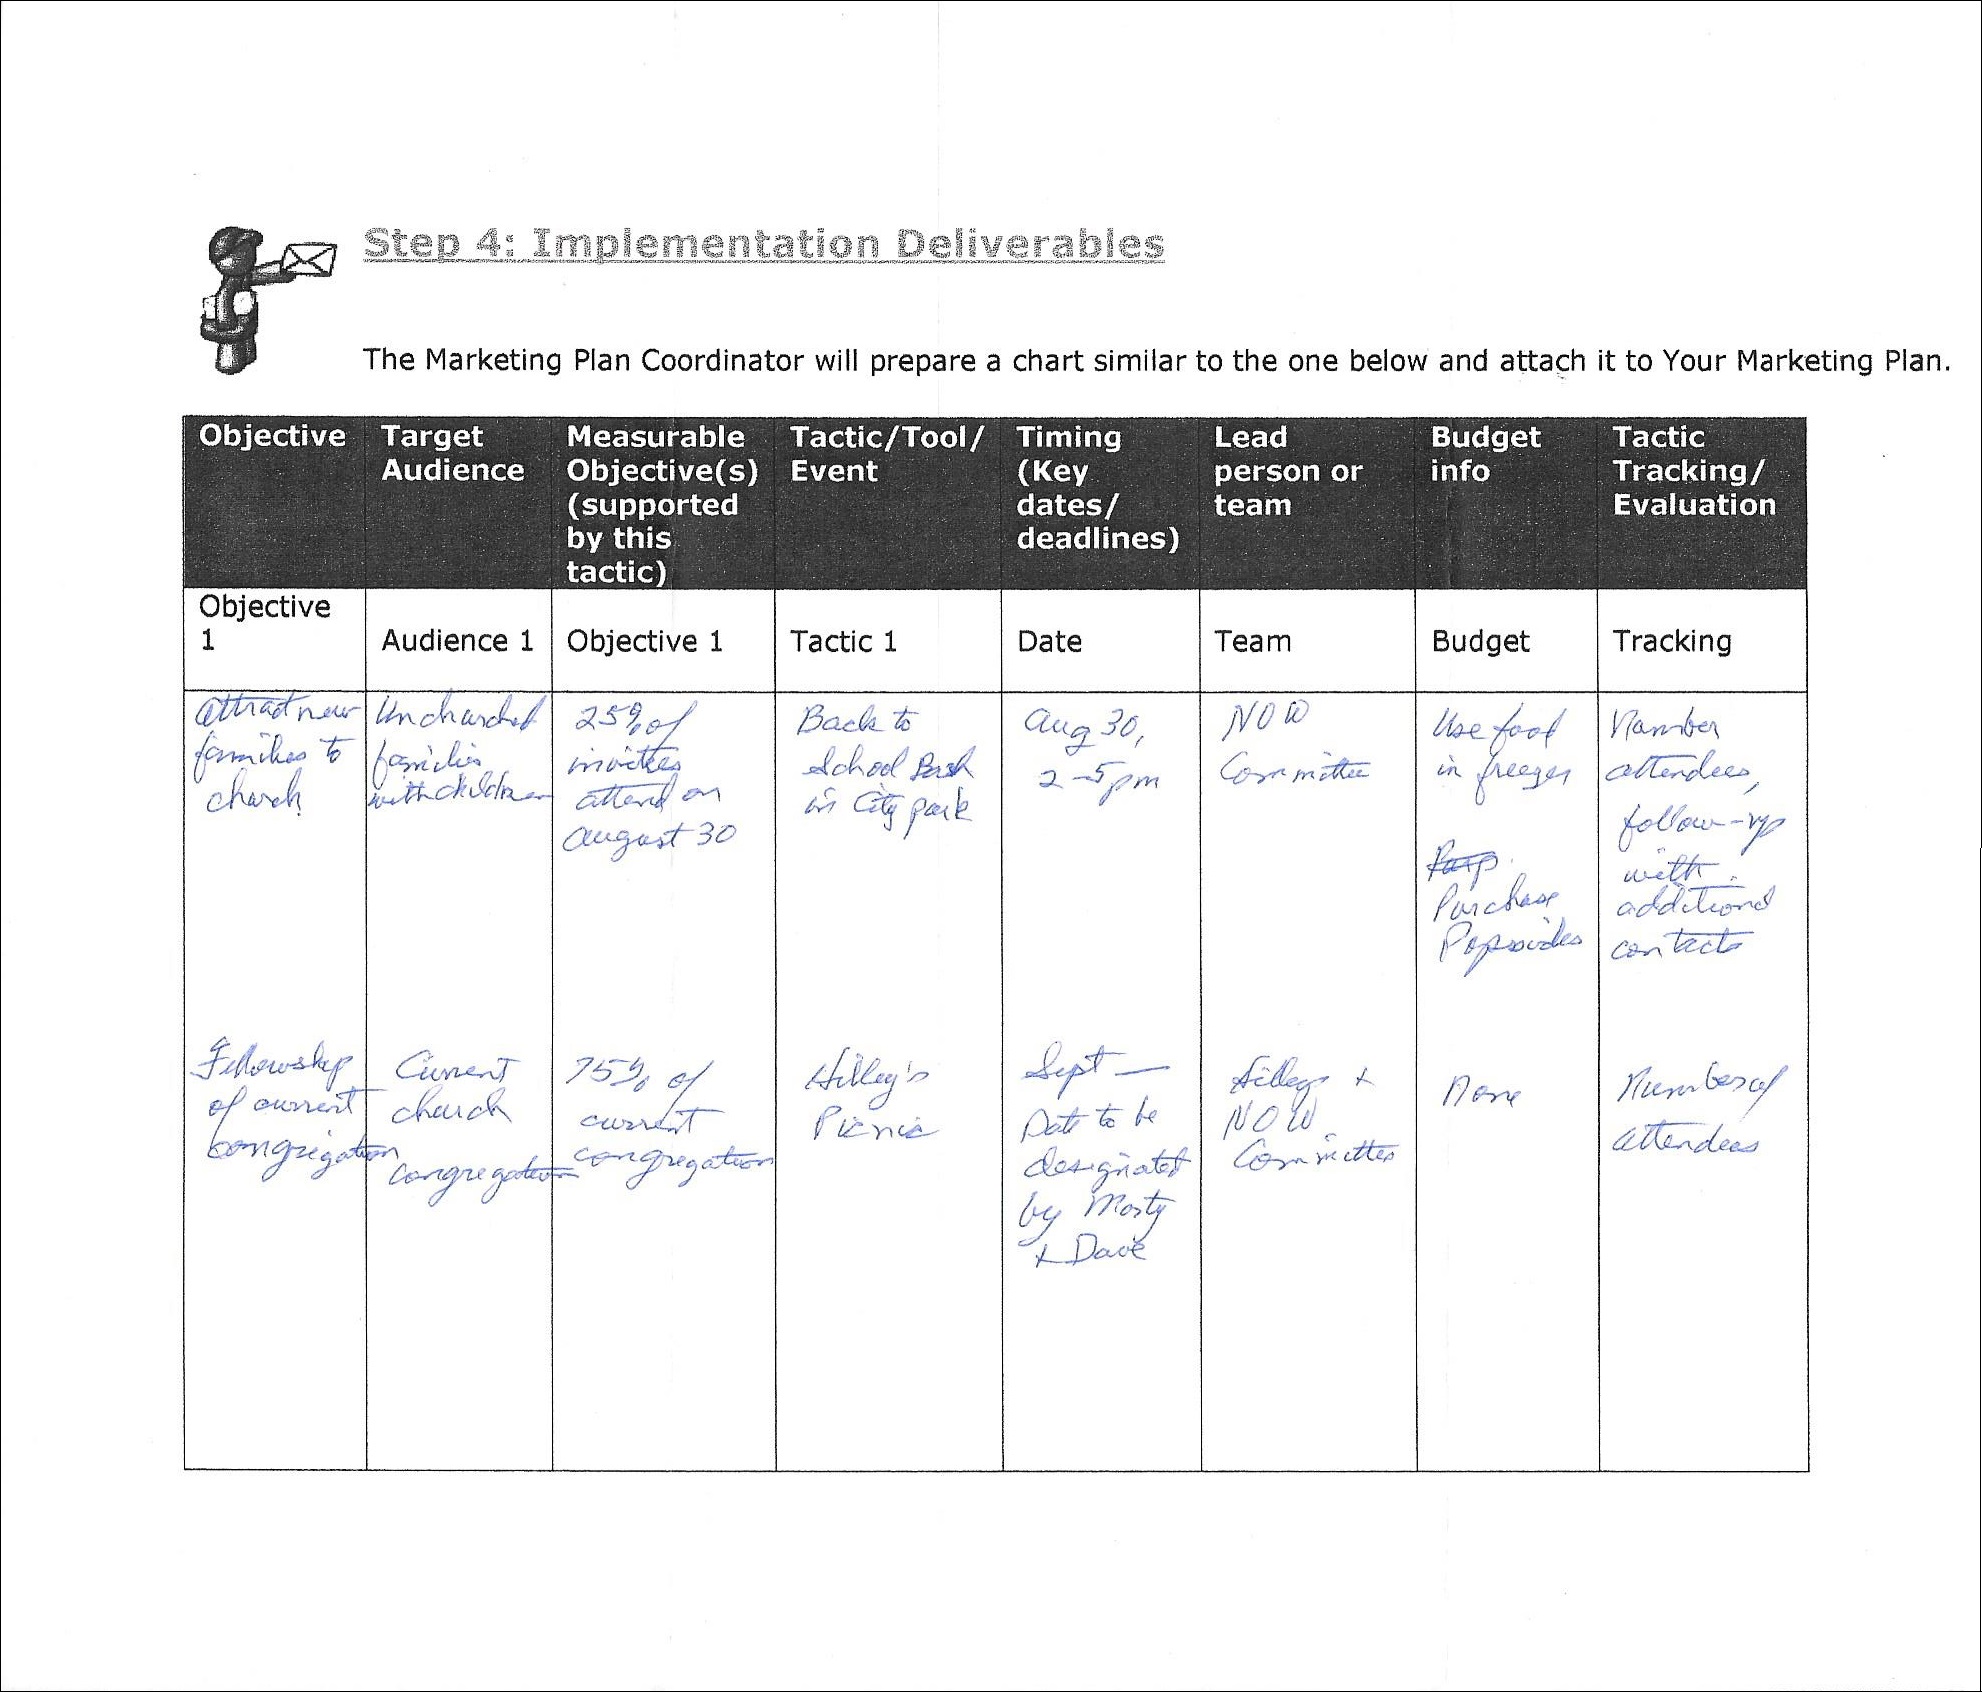 Step 4: Implementation Deliverables
The Marketing Plan Coordinator will prepare a chart similar to the one below and attach it to Your Marketing Plan.
Objective
Target
Audience
Measurable
Objective(s)
(supported
by this
tactic)
Tactic/Tool/
Event
Timing
(Key
dates/
deadlines)
Lead
person or
team
Budget
info
Tactic
Tracking/
Evaluation
Objective
1
Audience 1
Objective 1
Tactic 1
Date
Team
Budget
Tracking
Attract new
families to
church
Unchurched
families
with children
25% of
invitees
attend on
August 30
Back to
School Bash
in City park
Aug 30,
2-5 pm
NOW
Committee
Use food
in freezer
Purchase
Popsicles
Number
attendees,
follow-up
with
additional
contacts
Fellowship
of current
congregation
Current
church
congregation
75% of
current
congregation
Hilley's
Picnic
Sept —
Date to be
designated
by Marty
+ Dave
Hilleys +
NOW
Committee
None
Number of
attendees